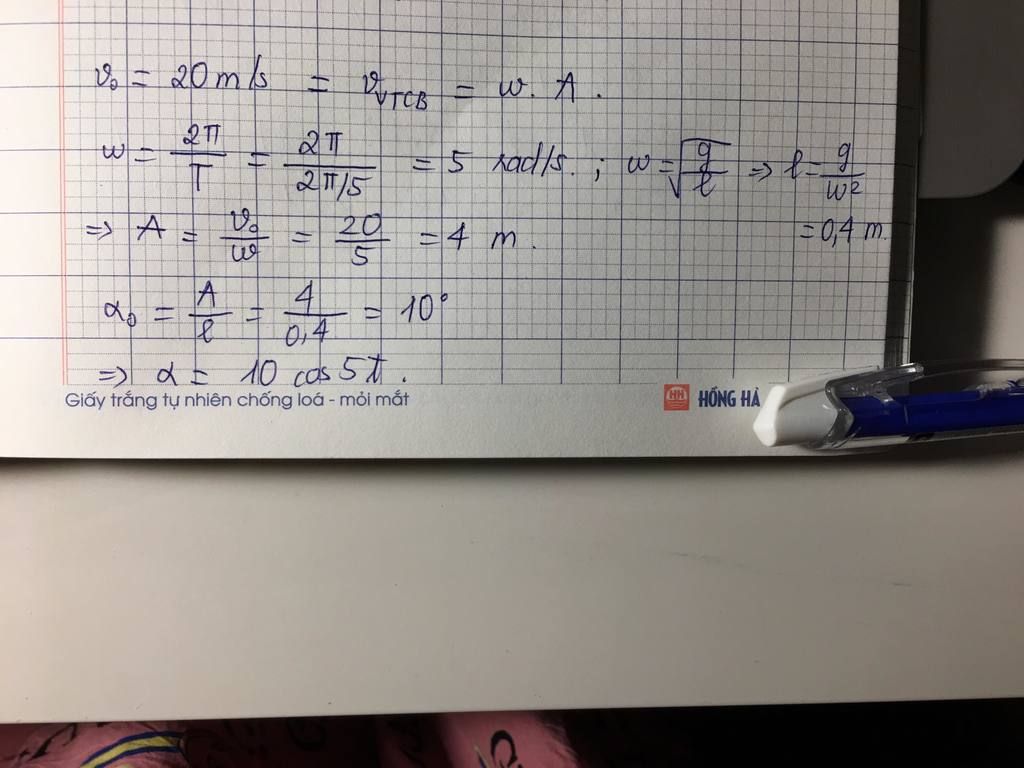 v₀ = 20 m/s = v_VTCB = w. A.
w = 2π/T = 2π/(2π/5) = 5 rad/s. ; w = √(g/l) => l = g/w²
= 0,4 m.
=> A = v₀/w = 20/5 = 4 m.
α₀ = A/l = 4/0,4 = 10°
=> α = 10 cos 5t.
Giấy trắng tự nhiên chống loá - mỏi mắt
HH HỒNG HÀ